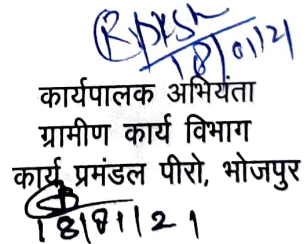 18/01/21
कार्यपालक अभियंता
ग्रामीण कार्य विभाग
कार्य प्रमंडल पीरो, भोजपुर
18/01/21